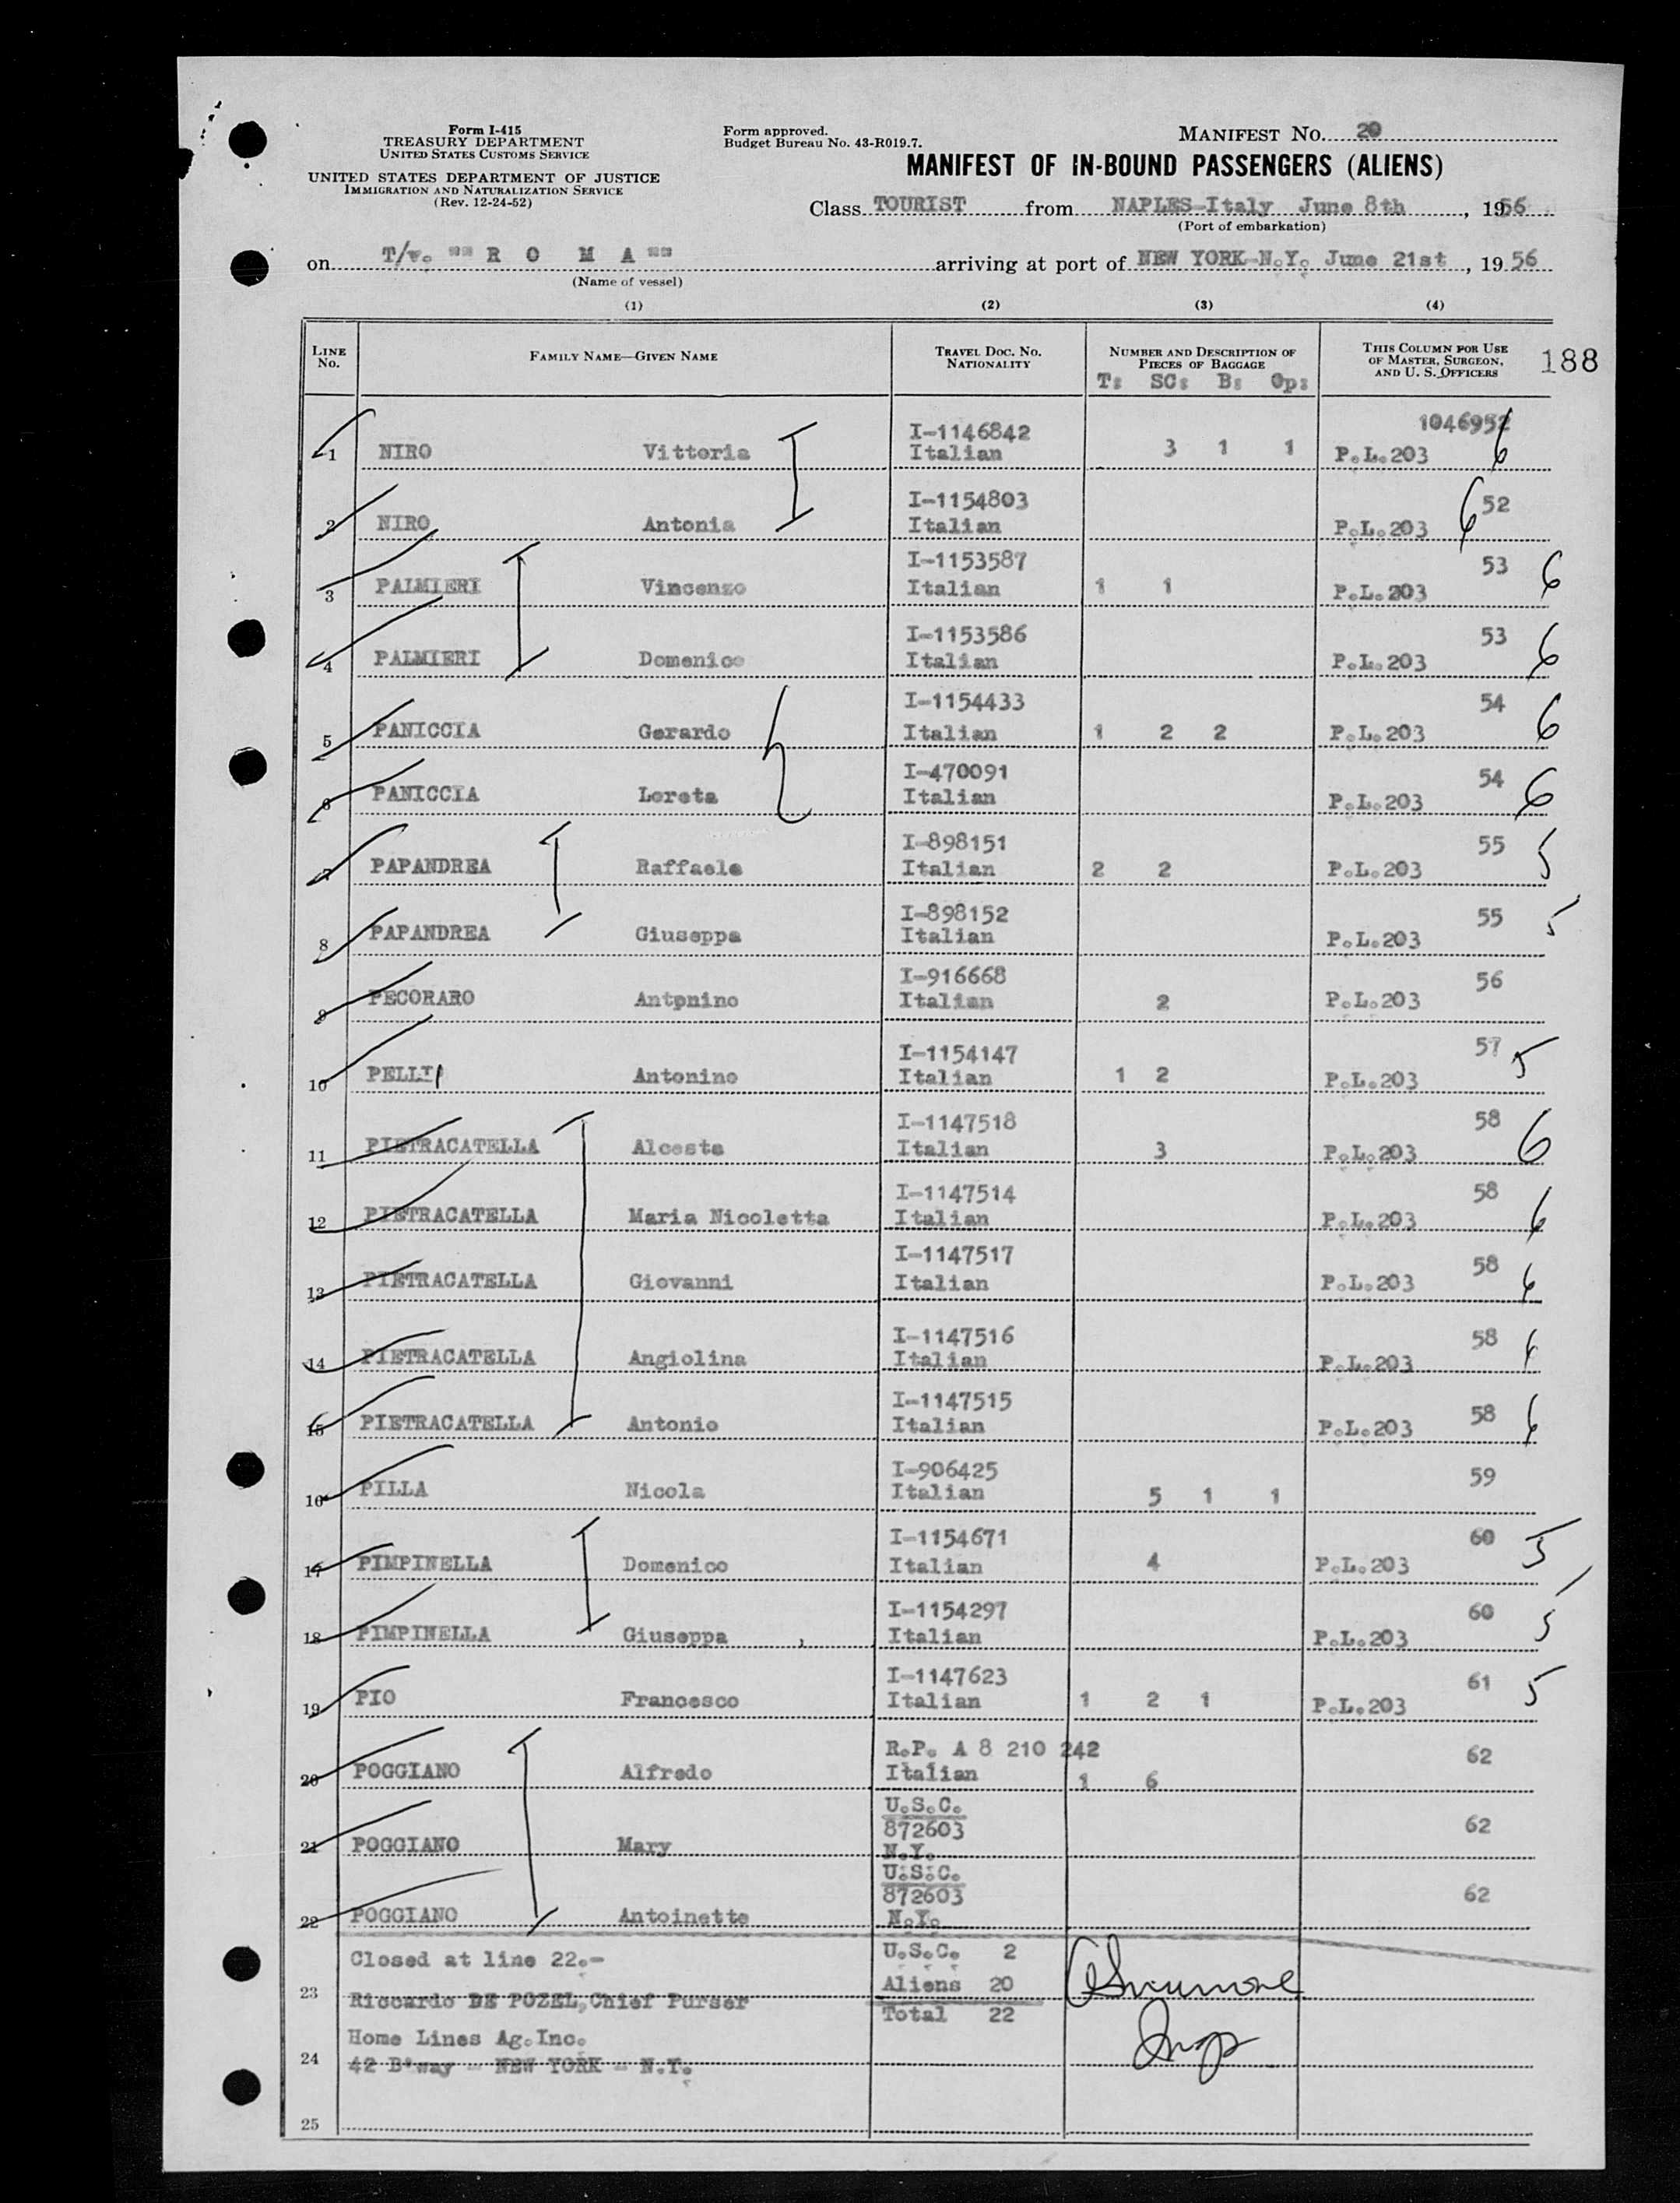 Form I-415
TREASURY DEPARTMENT
UNITED STATES CUSTOMS SERVICE
UNITED STATES DEPARTMENT OF JUSTICE
IMMIGRATION AND NATURALIZATION SERVICE
(Rev. 12-24-52)
Form approved.
Budget Bureau No. 43-R019.7.
MANIFEST NO. 20
MANIFEST OF IN-BOUND PASSENGERS (ALIENS)
Class TOURIST from NAPLES-Italy June 8th, 1956
(Port of embarkation)
on T/v. "" R O M A "" arriving at port of NEW YORK-N.Y. June 21st, 19 56
(Name of vessel)
(1) (2) (3) (4)
LINE No. FAMILY NAME—GIVEN NAME TRAVEL DOC. NO. NATIONALITY NUMBER AND DESCRIPTION OF PIECES OF BAGGAGE THIS COLUMN FOR USE OF MASTER, SURGEON, AND U. S. OFFICERS 188
T: SC: B: Gp:
I-1146842 1046952
1 NIRO Vittoria Italian 3 1 1 P.L.203 6
I-1154803 52
2 NIRO Antonia Italian P.L.203 6
I-1153587 53
3 PALMIERI Vincenzo Italian 1 1 P.L.203 6
I-1153586 53
4 PALMIERI Domenico Italian P.L.203 6
I-1154433 54
5 PANICCIA Gerardo Italian 1 2 2 P.L.203 6
I-470091 54
6 PANICCIA Loreta Italian P.L.203 6
I-898151 55
7 PAPANDREA Raffaele Italian 2 2 P.L.203 5
I-898152 55
8 PAPANDREA Giuseppa Italian P.L.203 5
I-916668 56
9 PECORARO Antpnino Italian 2 P.L.203
I-1154147 57
10 PELLI Antonino Italian 1 2 P.L.203 5
I-1147518 58
11 PIETRACATELLA Alceste Italian 3 P.L.203 6
I-1147514 58
12 PIETRACATELLA Maria Nicoletta Italian P.L.203 6
I-1147517 58
13 PIETRACATELLA Giovanni Italian P.L.203 6
I-1147516 58
14 PIETRACATELLA Angiolina Italian P.L.203 6
I-1147515 58
15 PIETRACATELLA Antonio Italian P.L.203 6
I-906425 59
16 PILLA Nicola Italian 5 1 1
I-1154671 60
17 PIMPINELLA Domenico Italian 4 P.L.203 5
I-1154297 60
18 PIMPINELLA Giuseppa Italian P.L.203 5
I-1147623 61
19 PIO Francesco Italian 1 2 1 P.L.203 5
R.P. A 8 210 242 62
20 POGGIANO Alfredo Italian 1 6
U.S.C.
872603 62
21 POGGIANO Mary N.Y.
U.S.C.
872603 62
22 POGGIANO Antoinette N.Y.
Closed at line 22.- U.S.C. 2
Aliens 20
23 Riccardo DE POZEL, Chief Purser
Total 22
Home Lines Ag.Inc. Insp
24 42 B'way - NEW YORK - N.Y.
25